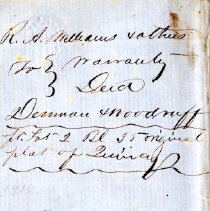 R. A. Williams & others
To } Warranty
Deed
Denman & Woodruff
pt Lot 2 Bl 35 original
plat of Quincy
1930